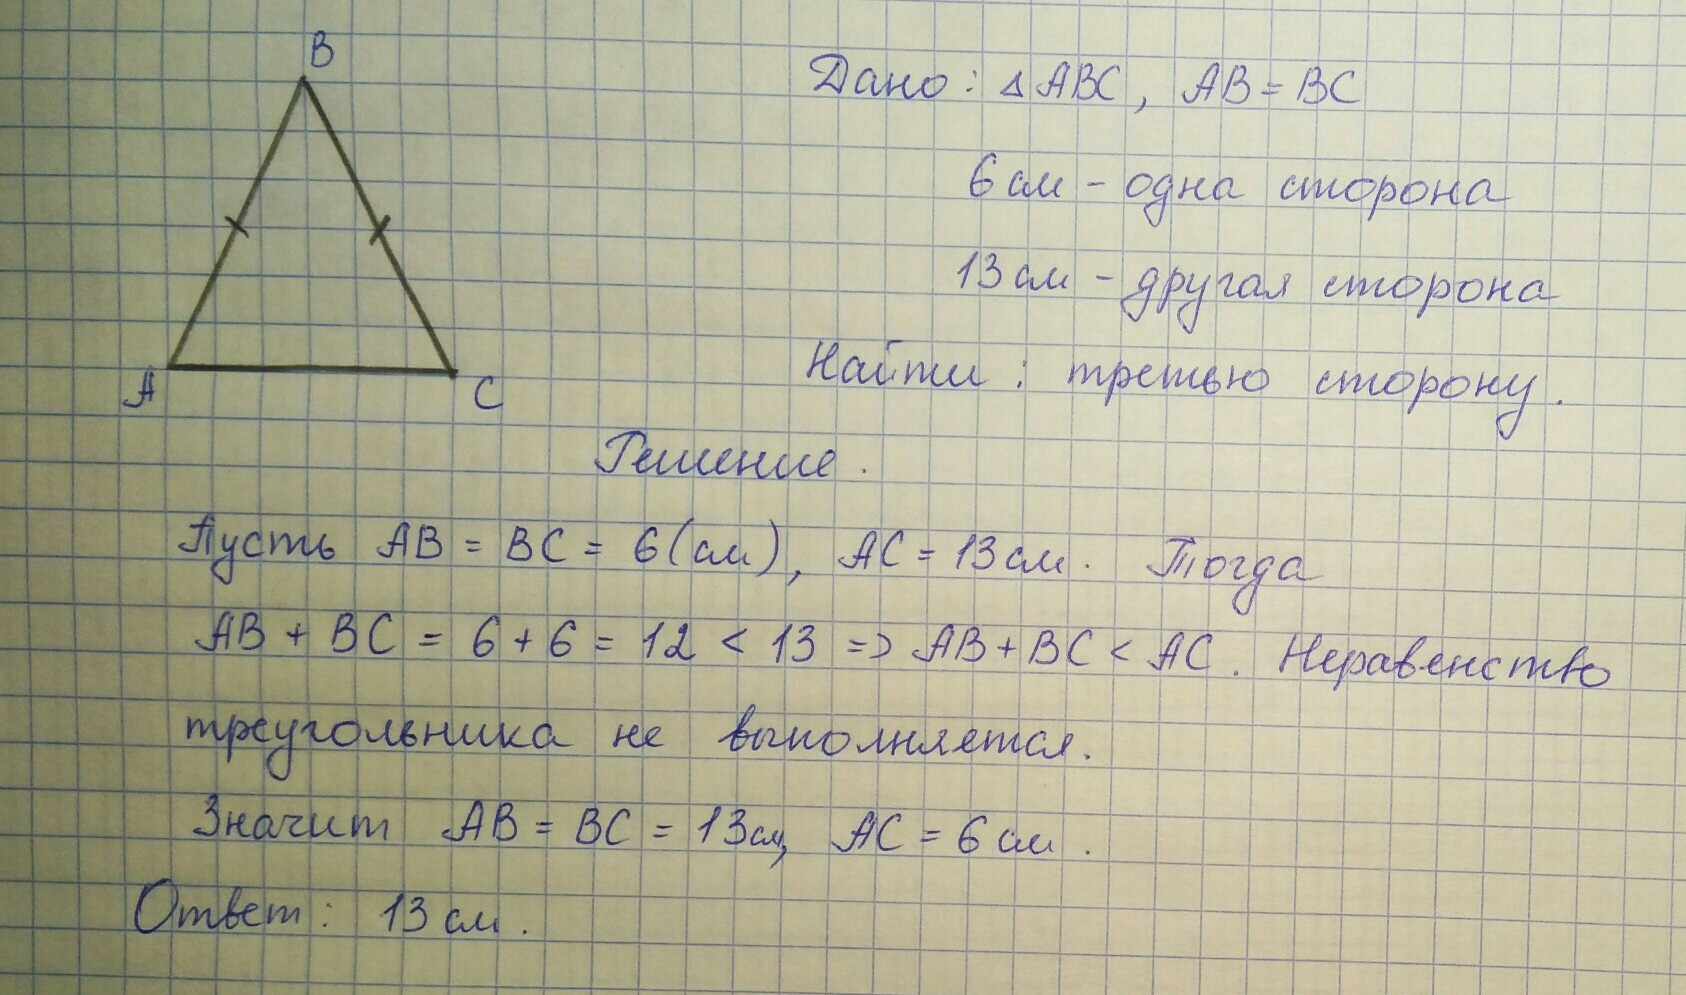 B
A
C
Дано: △ABC, AB = BC
6 см - одна сторона
13 см - другая сторона
Найти: третью сторону.
Решение.
Пусть AB = BC = 6 (см), AC = 13 см. Тогда
AB + BC = 6 + 6 = 12 < 13 => AB + BC < AC. Неравенство
треугольника не выполняется.
Значит AB = BC = 13 см, AC = 6 см.
Ответ: 13 см.